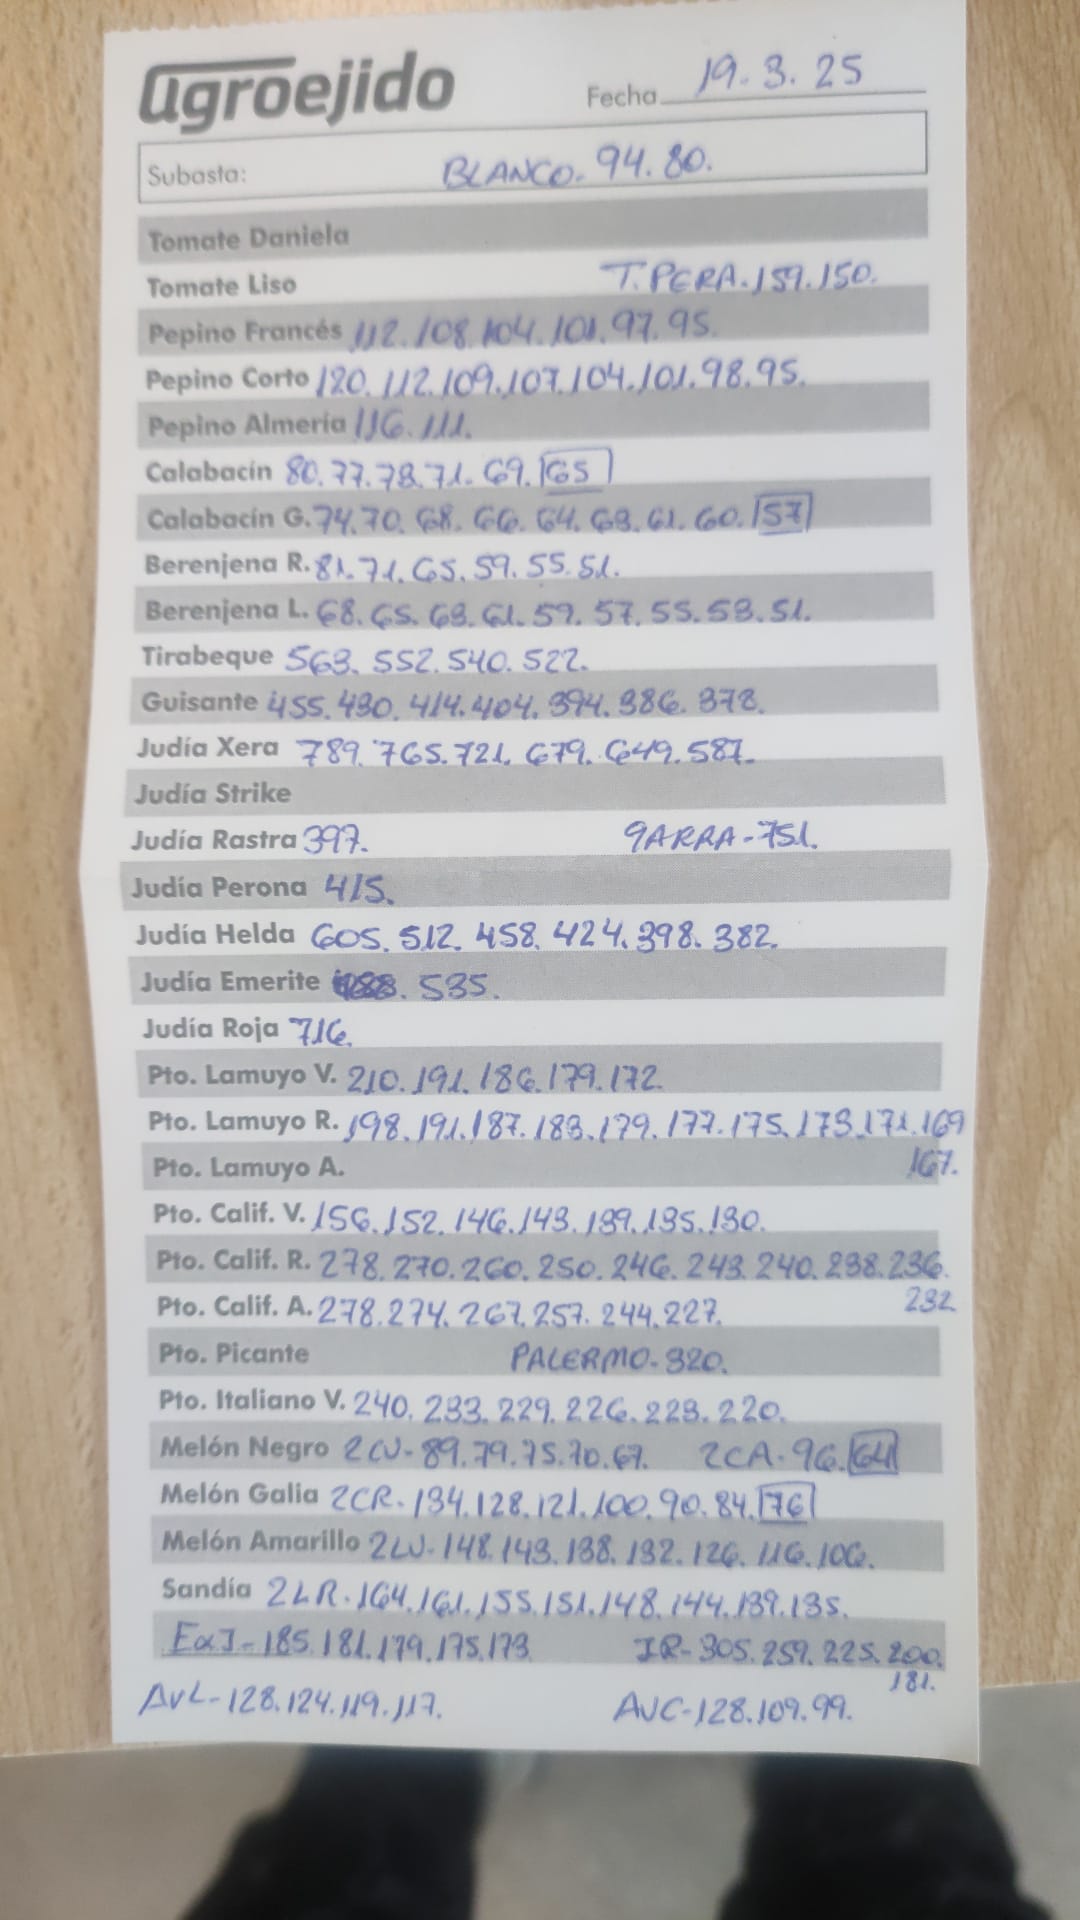 agroejido Fecha 19.3.25
Subasta: BLANCO. 94.80.
Tomate Daniela
Tomate Liso T.PERA.159.150.
Pepino Francés 112.108.104.101.97.95.
Pepino Corto 120.112.109.107.104.101.98.95.
Pepino Almería 116.111.
Calabacín 80.77.73.71.69.65
Calabacín G. 74.70.68.66.64.63.61.60.57
Berenjena R. 81.71.65.59.55.51.
Berenjena L. 68.65.63.61.59.57.55.53.51.
Tirabeque 563.552.540.522.
Guisante 455.430.414.404.394.386.378.
Judía Xera 789.765.721.679.649.587.
Judía Strike
Judía Rastra 397. GARRA-751.
Judía Perona 415.
Judía Helda 605.512.458.424.398.382.
Judía Emerite 535.
Judía Roja 716.
Pto. Lamuyo V. 210.191.186.179.172.
Pto. Lamuyo R. 198.191.187.183.179.177.175.173.171.169
Pto. Lamuyo A. 167.
Pto. Calif. V. 156.152.146.143.139.135.130.
Pto. Calif. R. 278.270.260.250.246.243.240.238.236.
Pto. Calif. A. 278.274.267.257.244.227. 232
Pto. Picante PALERMO-320.
Pto. Italiano V. 240.233.229.226.223.220.
Melón Negro 2CU-89.79.75.70.67. 2CA-96.64
Melón Galia 2CR-134.128.121.100.90.84.76
Melón Amarillo 2LU-148.143.138.132.126.116.106.
Sandía 2LR.164.161.155.151.148.144.139.135.
ExI-185.181.179.175.173 IR-305.259.225.200.
181.
AVL-128.124.119.117. AVC-128.109.99.